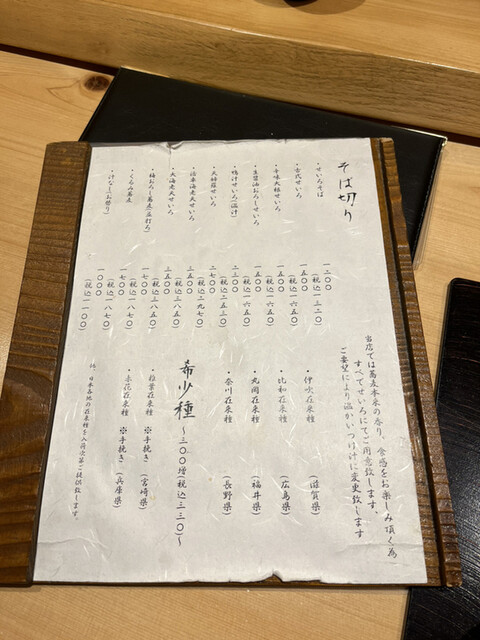 そば切り
・せいろそば 一二〇〇(税込一三二〇)
・古代せいろ 一五〇〇(税込一六五〇)
・辛味大根せいろ 一五〇〇(税込一六五〇)
・生醤油おろしせいろ 一五〇〇(税込一六五〇)
・鴨汁せいろ(温汁) 二三〇〇(税込二五三〇)
・天婦羅せいろ 二七〇〇(税込二九七〇)
・活車海老天せいろ 三五〇〇(税込三八五〇)
・大海老天せいろ 三五〇〇(税込三八五〇)
・梅おろし蕎麦(並打ち) 一七〇〇(税込一八七〇)
・くるみ蕎麦 一七〇〇(税込一八七〇)
・汁なし(お替り) 一〇〇〇(税込一一〇〇)
当店では蕎麦本来の香り、食感をお楽しみ頂く為
すべてせいろにてご用意致します。
ご要望により温かいつけ汁に変更致します
・伊吹在来種 (滋賀県)
・比和在来種 (広島県)
・丸岡在来種 (福井県)
・奈川在来種 (長野県)
希少種 〜三〇〇増(税込三三〇)〜
・椎葉在来種 ※手挽き(宮崎県)
・赤花在来種 ※手挽き(兵庫県)
他、日本各地の在来種を入荷次第ご提供致します。